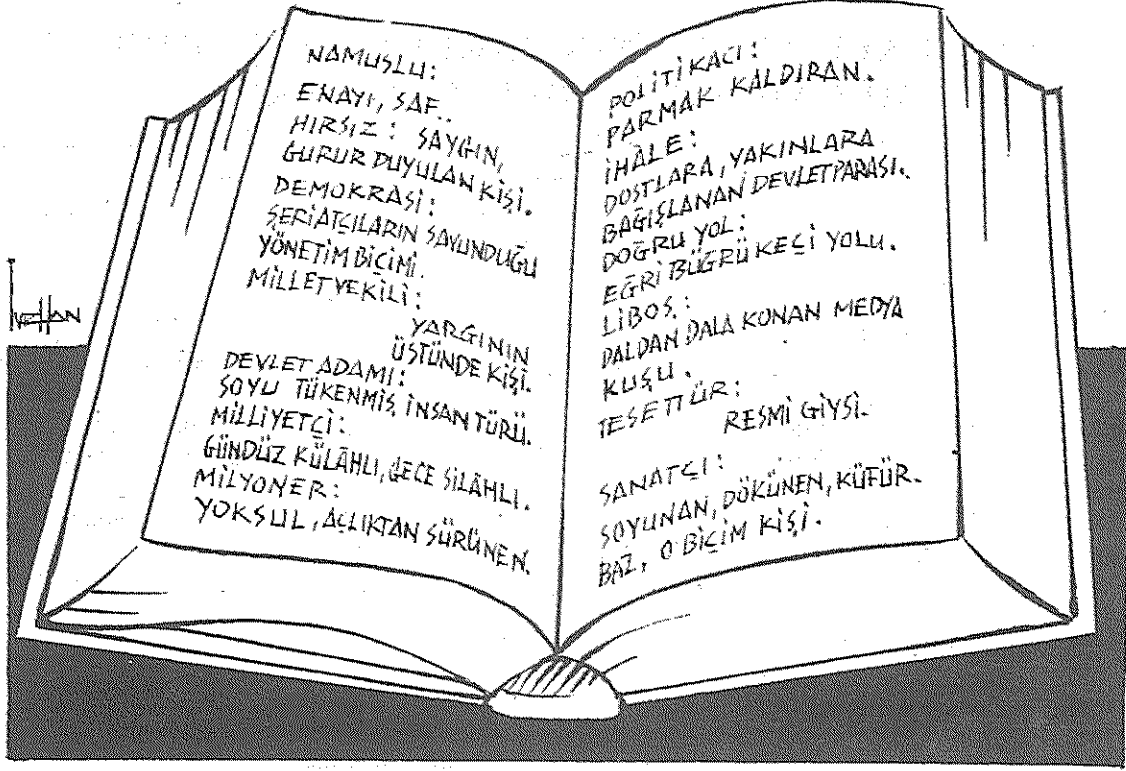 NAMUSLU:
ENAYI, SAF..
HIRSIZ: SAYGIN,
GURUR DUYULAN KİŞİ.
DEMOKRASİ:
ŞERİATÇILARIN SAVUNDUĞU
YÖNETİM BİÇİMİ.
MİLLETVEKİLİ:
YARGININ
ÜSTÜNDE KİŞİ.
DEVLET ADAMI:
SOYU TÜKENMİŞ İNSAN TÜRÜ.
MİLLİYETÇİ:
GÜNDÜZ KÜLÂHLI, GECE SİLÂHLI.
MİLYONER:
YOKSUL, AÇLIKTAN SÜRÜNEN.
POLİTİKACI:
PARMAK KALDIRAN.
İHÂLE:
DOSTLARA, YAKINLARA
BAĞIŞLANAN DEVLET PARASI.
DOĞRU YOL:
EĞRİ BÜĞRÜ KEÇİ YOLU.
LİBOŞ:
DALDAN DALA KONAN MEDYA
KUŞU.
TESETTÜR:
RESMİ GİYSİ.
SANATÇI:
SOYUNAN, DÖKÜNEN, KÜFÜR.
BAZ, O BİÇİM KİŞİ.